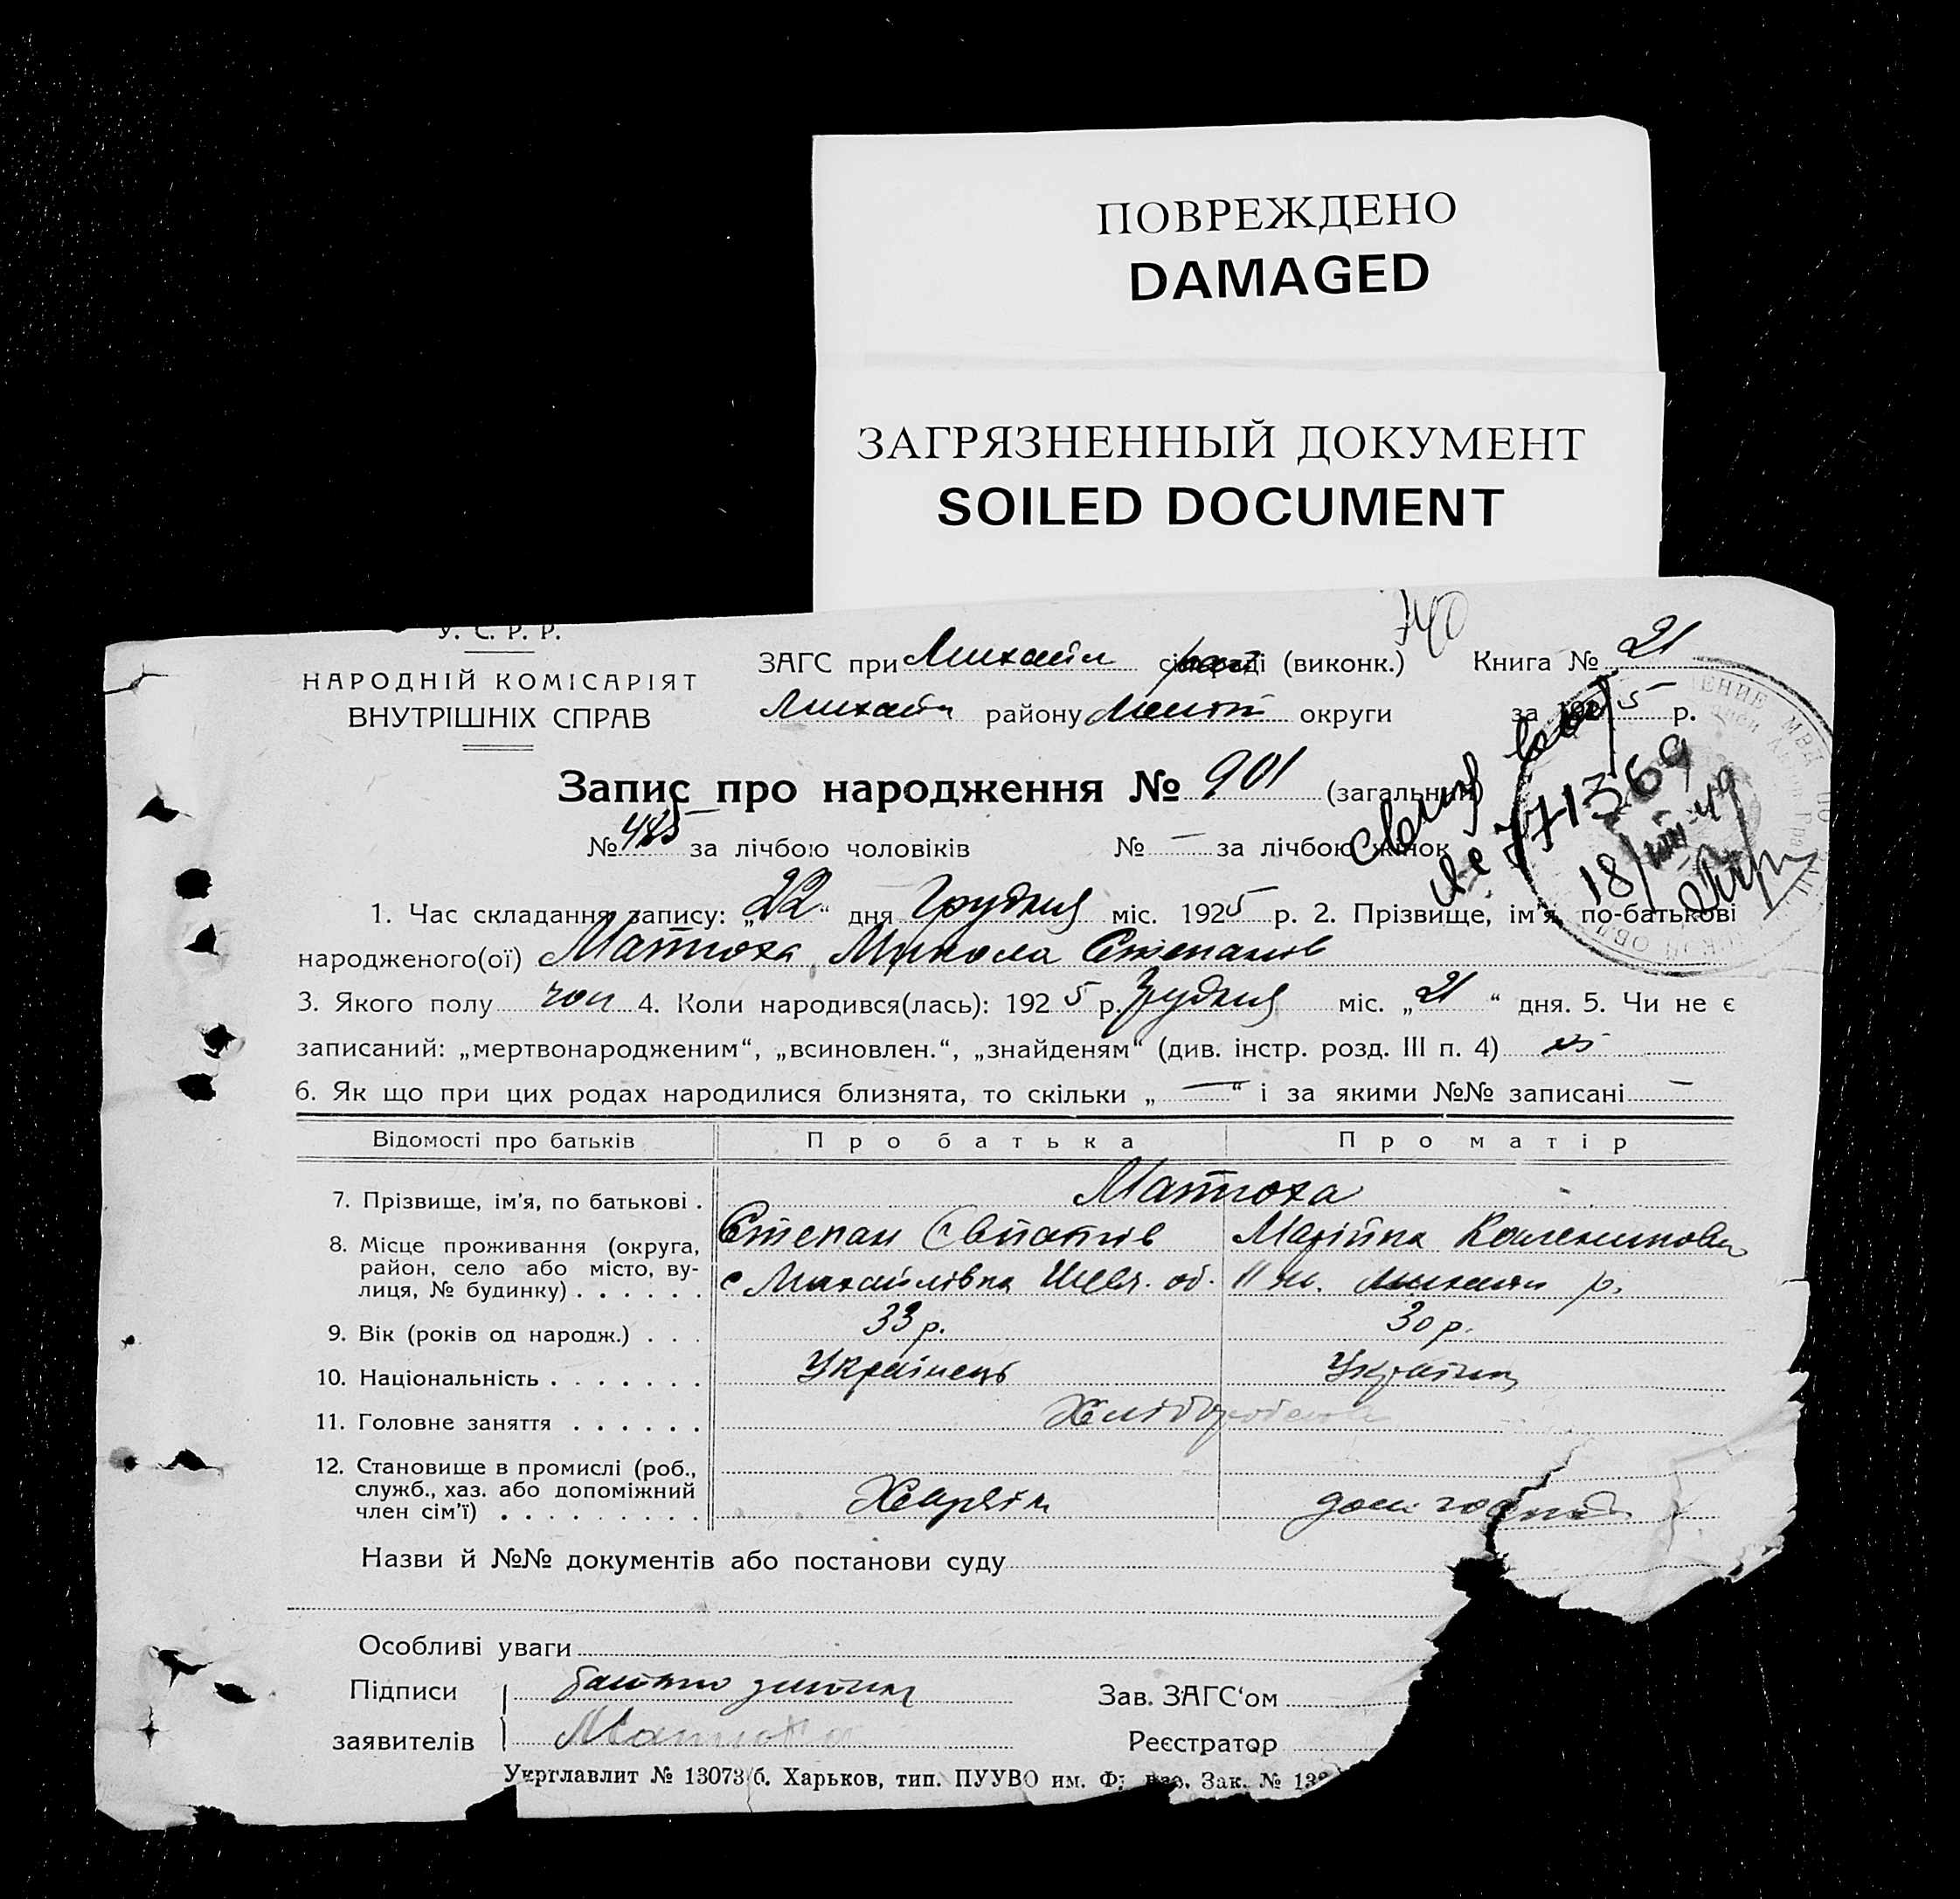 ПОВРЕЖДЕНО
DAMAGED
ЗАГРЯЗНЕННЫЙ ДОКУМЕНТ
SOILED DOCUMENT
740
У. С. Р. Р.
НАРОДНІЙ КОМІСАРІЯТ
ВНУТРІШНІХ СПРАВ
ЗАГС при Михайл (виконк.) Книга № 21
Михайл району Меліт округи за 1925 р.
Запис про народження № 901 (загальний)
№ 485 за лічбою чоловіків № — за лічбою жінок
771369
18/VIII-49
1. Час складання запису: „22“ дня Грудня міс. 1925 р. 2. Прізвище, ім'я, по-батькові
народженого(ої) Матюха Микола Степанов
3. Якого полу чол 4. Коли народився(лась): 1925 р. Грудня міс. „21“ дня. 5. Чи не є
записаний: „мертвонародженим“, „всиновлен.“, „знайденям“ (див. інстр. розд. III п. 4) ні
6. Як що при цих родах народилися близнята, то скільки „—“ і за якими №№ записані —
Відомості про батьків Про батька Про матір
7. Прізвище, ім'я, по батькові . Матюха
Степан
8. Місце проживання (округа, район, село або місто, вулиця, № будинку) . . . . . . с Михайлівка
9. Вік (років од народж.) . . . 33 р. 30 р.
10. Національність . . . . . . . Українець Українка
11. Головне заняття . . . . . . Хлібороб
12. Становище в промислі (роб., служб., хаз. або допоміжний член сім'ї) . . . . . . . . . Хазяїн
Назви й №№ документів або постанови суду
Особливі уваги
Підписи батько
заявителів Матюха
Зав. ЗАГС‘ом
Реєстратор
Укрглавлит № 13073/б. Харьков, тип. ПУУВО им. Зак. №